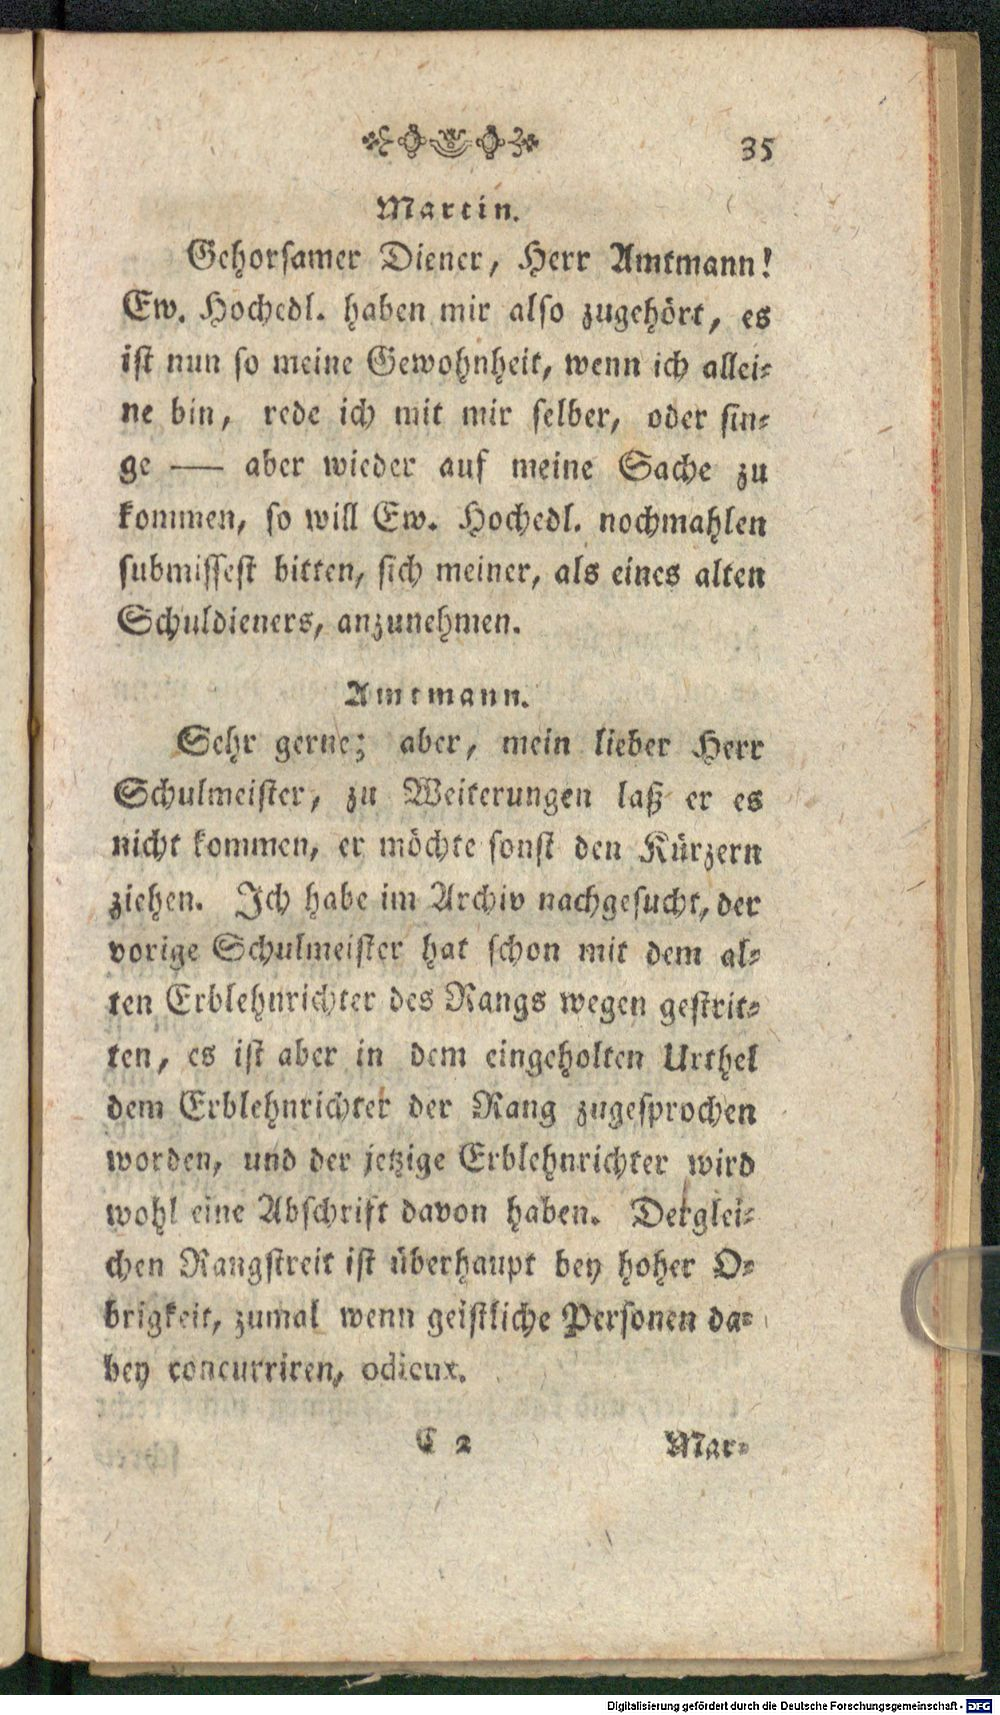 35
Martin.
Gehorsamer Diener, Herr Amtmann!
Ew. Hochedl. haben mir also zugehört, es
ist nun so meine Gewohnheit, wenn ich allei-
ne bin, rede ich mit mir selber, oder sin-
ge — aber wieder auf meine Sache zu
kommen, so will Ew. Hochedl. nochmahlen
submissest bitten, sich meiner, als eines alten
Schuldieners, anzunehmen.
Amtmann.
Sehr gerne; aber, mein lieber Herr
Schulmeister, zu Weiterungen laß er es
nicht kommen, er möchte sonst den Kürzern
ziehen. Ich habe im Archiv nachgesucht, der
vorige Schulmeister hat schon mit dem al-
ten Erblehnrichter des Rangs wegen gestrit-
ten, es ist aber in dem eingeholten Urthel
dem Erblehnrichter der Rang zugesprochen
worden, und der jetzige Erblehnrichter wird
wohl eine Abschrift davon haben. Derglei-
chen Rangstreit ist überhaupt bey hoher O-
brigkeit, zumal wenn geistliche Personen da-
bey concurriren, odieux.
C 2 Mar-
Digitalisierung gefördert durch die Deutsche Forschungsgemeinschaft - DFG